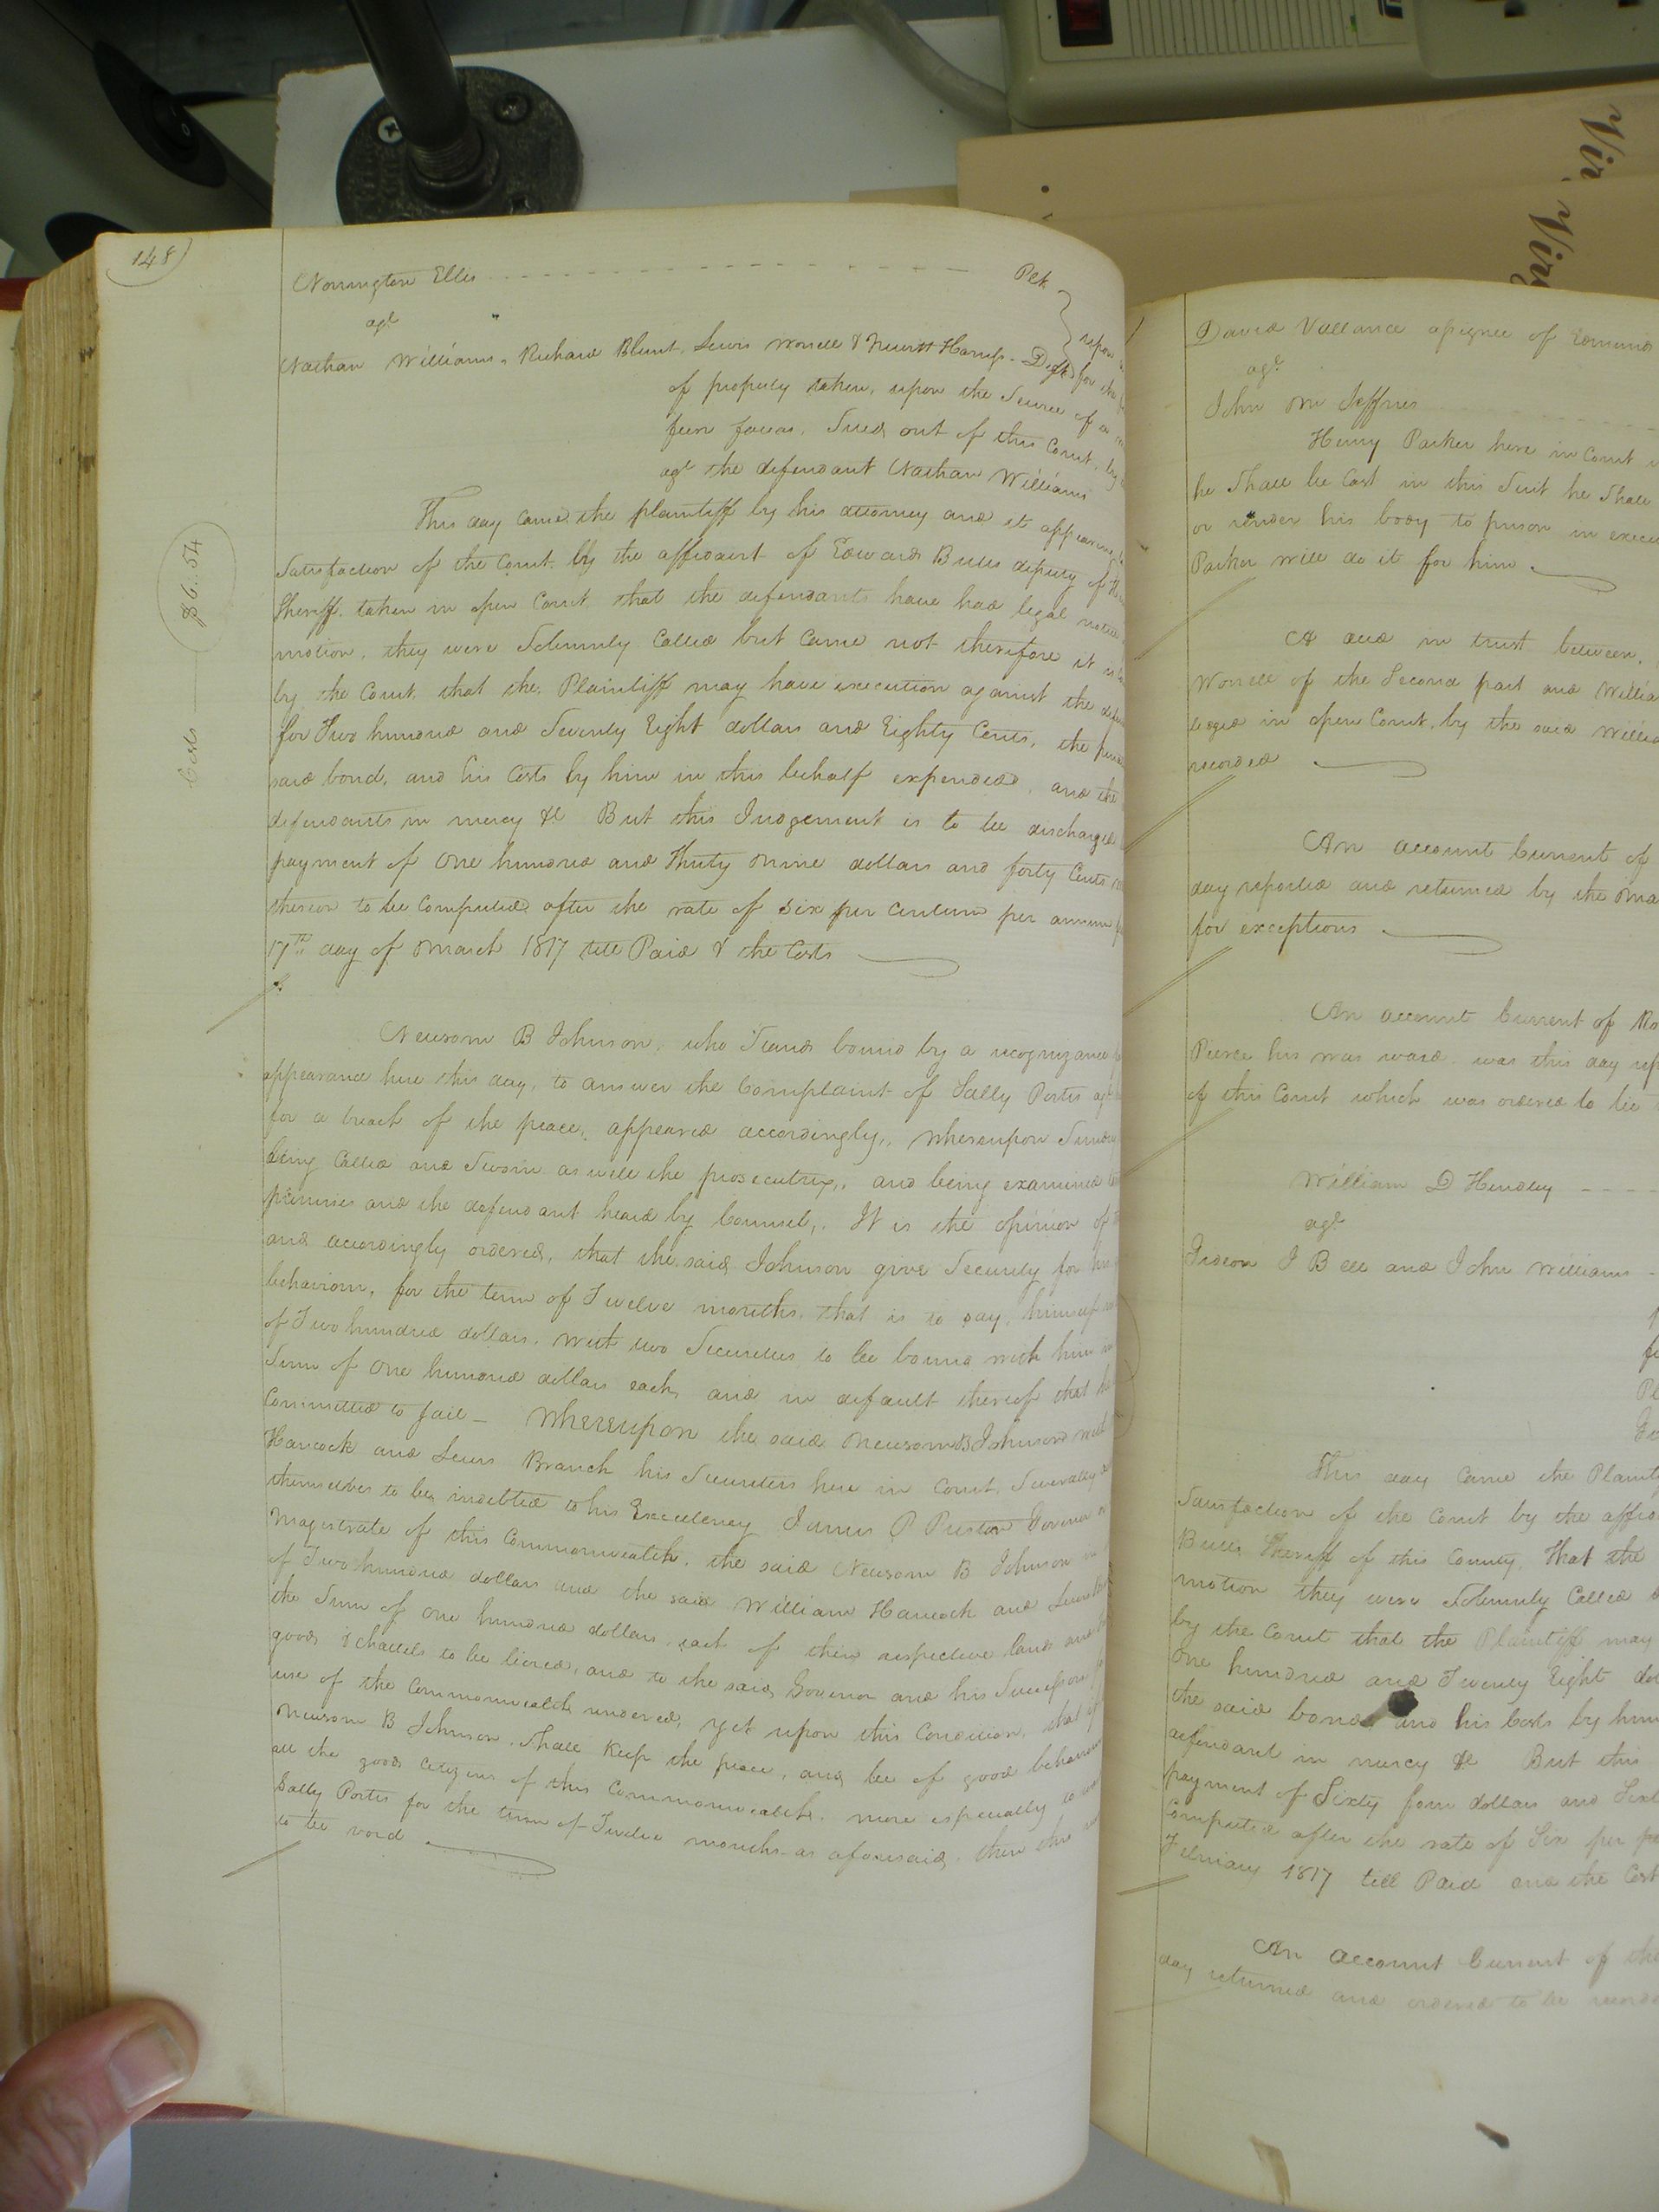 148
Nonington Ellis Plt
agt
Nathan Williams, Richard Blunt, Lewis Worrell & Hewitt Harris Defts
for the
of property taken, upon the Service of a
fieri facias, Sued out of this Court, by
agt the defendant Nathan Williams
This day came the plaintiff by his attorney and it appearing
Satisfaction of the Court by the affidavit of Edward Butts deputy of
Sheriff taken in open Court that the defendants have had legal notice
motion, they were Solemnly Called but Came not therefore it is
by the Court, that the Plaintiff may have execution against the
for Two hundred and Seventy Eight dollars and Eighty Cents, the
said bond, and his Costs by him in this behalf expended, and the
defendants in mercy &c But this Judgement is to be discharged
payment of One hundred and Thirty nine dollars and forty Cents
thereon to be Computed after the rate of Six per Centum per annum
17th day of March 1817 till Paid & the Costs
Costs $6.54
Newsom B Johnson, who Stands bound by a recognizance
appearance here this day, to answer the Complaint of Sally Portis agt
for a breach of the peace, appeared accordingly, whereupon
being Called and Sworn as well the prosecutrix, and being examined
premises and the defendant heard by Counsel, It is the opinion of
and accordingly ordered, that the said Johnson give Security for his
behaviour, for the term of Twelve months, that is to say, himself
of Two hundred dollars, with two Securities to be bound with him
Sum of One hundred dollars each, and in default thereof that he
Committed to Jail — Whereupon the said Newsom B Johnson with
Hancock and Lewis Branch his Securities here in Court, Severally
themselves to be indebted to his Excellency James P Preston Governor
Magistrate of this Commonwealth, the said Newsom B Johnson
of Two hundred dollars and the said William Hancock and Lewis
the Sum of One hundred dollars, each of their respective lands and
goods & chattels to be levied, and to the said Governor and his Successors
use of the Commonwealth rendered, yet upon this Condition, that if
Newsom B Johnson, Shall Keep the peace, and be of good behaviour
all the good Citizens of this Commonwealth, more especially
Sally Portis for the term of Twelve months as aforesaid, then this
to be void
David Vallance assignee of Edmund
agt
John M Jeffries
Henry Parker here in Court
he Shall be Cast in this Suit he Shall
or render his body to prison in
Parker will do it for him
A deed in trust between,
Worrell of the Second part and
in open Court, by the said
recorded
An account Current of
day reported and returned by the
for exceptions
An account Current of
Pierce his ward was this day
of this Court which was ordered to lie
William D Hendley
agt
Gideon J Bell and John Williams
This day Came the
Satisfaction of the Court by the
Butts Sheriff of this County, that the
motion they were Solemnly Called
by the Court that the Plaintiff may
One hundred and Twenty Eight
the said bond and his Costs by him
defendant in mercy &c But this
payment of Sixty four dollars and
Computed after the rate of Six per
February 1817 till Paid and the Costs
An account Current of the
day returned and ordered to be